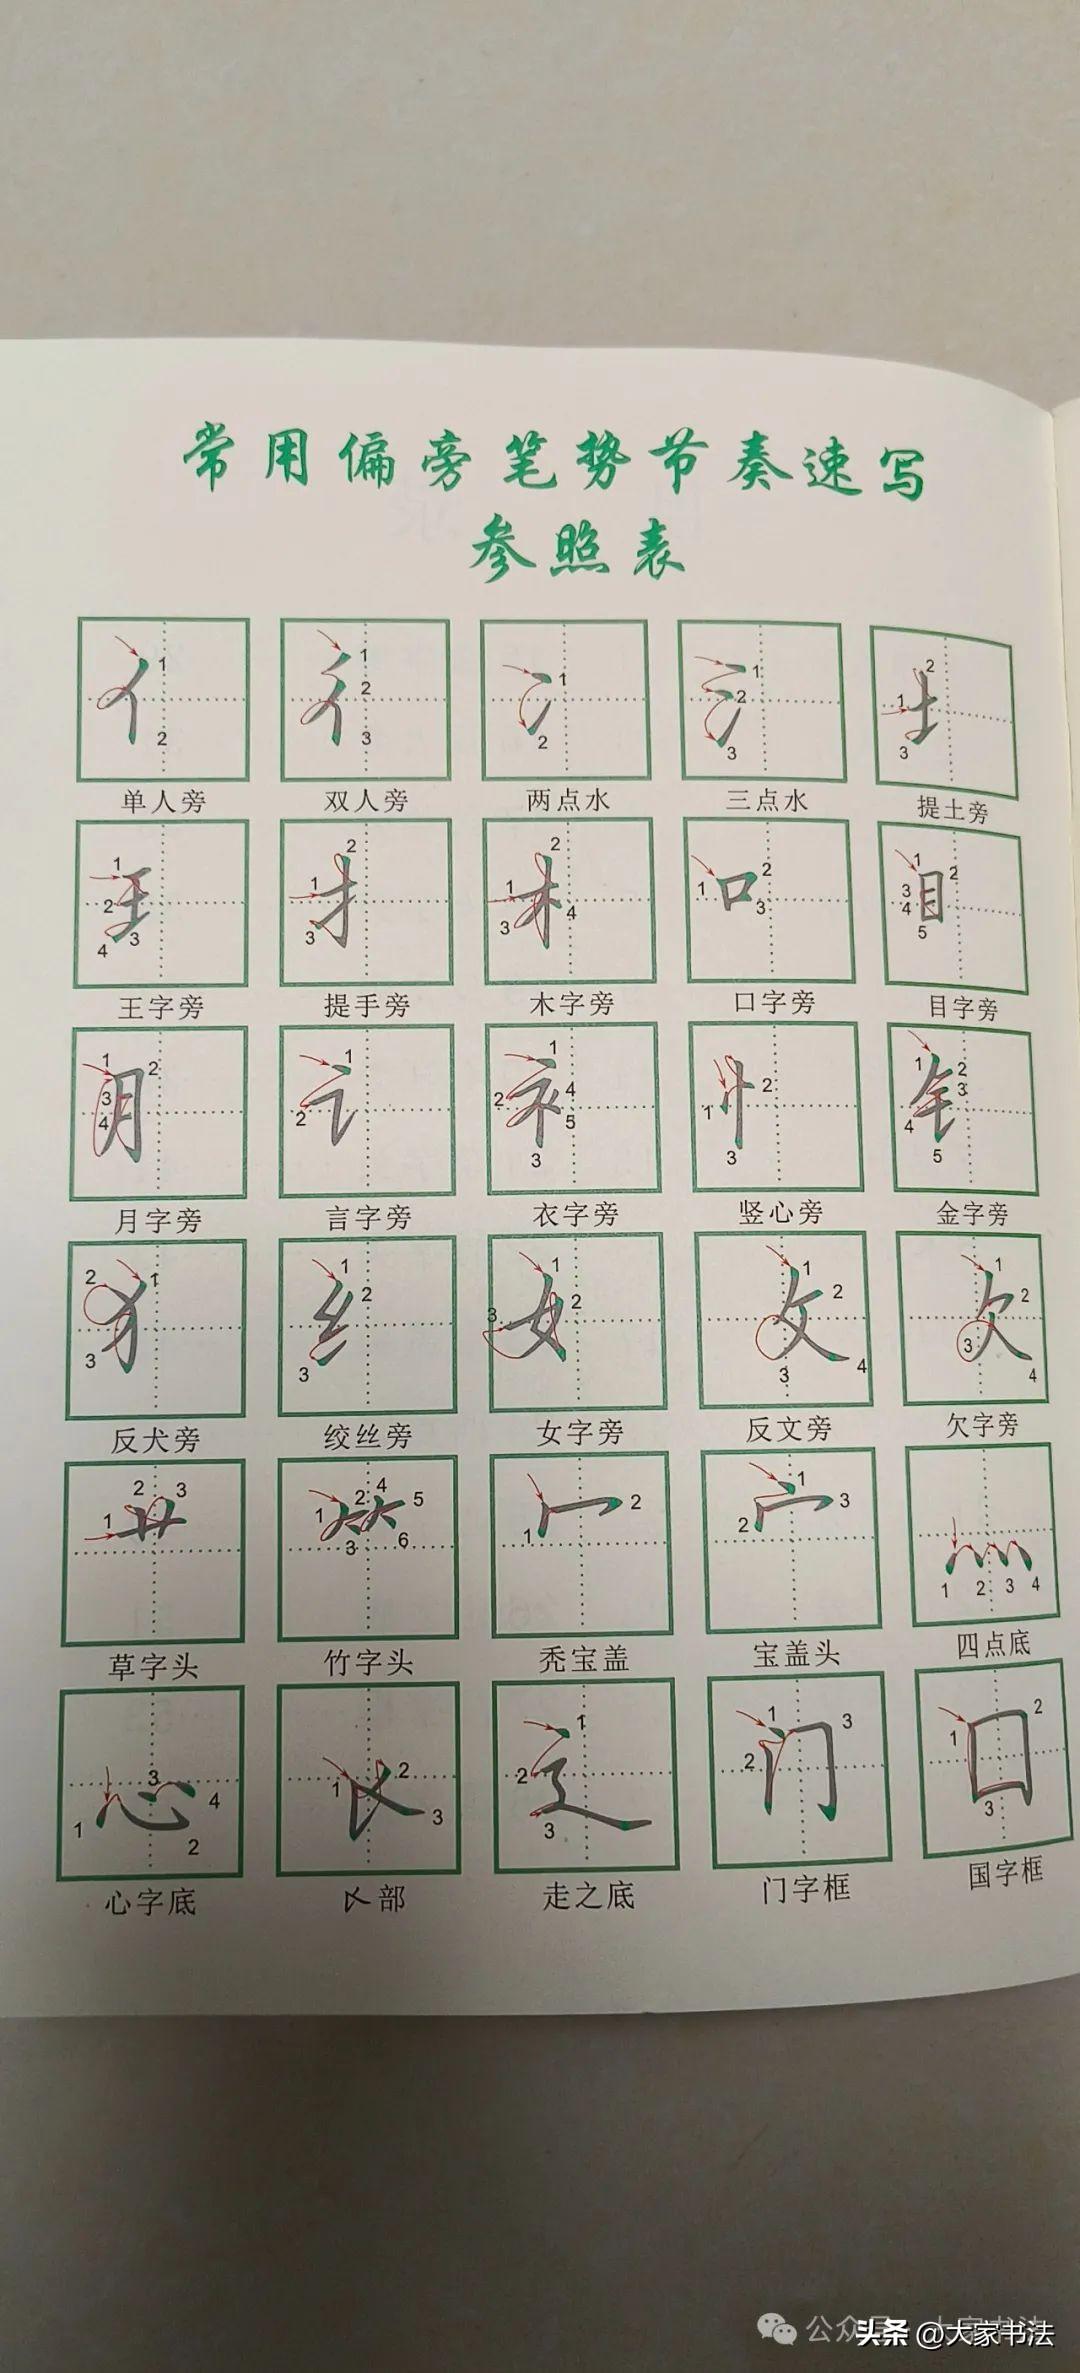 常用偏旁笔势节奏速写
参照表
1 2
1 2 3
1 2
1 2 3
1 2 3
单人旁 双人旁 两点水 三点水 提土旁
1 2 3 4
1 2 3
1 2 3 4
1 2 3
1 2 3 4 5
王字旁 提手旁 木字旁 口字旁 目字旁
1 2 3 4
1 2
1 2 3 4 5
1 2 3
1 2 3 4 5
月字旁 言字旁 衣字旁 竖心旁 金字旁
1 2 3
1 2 3
1 2 3
1 2 3 4
1 2 3 4
反犬旁 绞丝旁 女字旁 反文旁 欠字旁
1 2 3
1 2 3 4 5 6
1 2
1 2 3
1 2 3 4
草字头 竹字头 秃宝盖 宝盖头 四点底
1 2 3 4
1 2 3
1 2 3
1 2 3
1 2 3
心字底 部 走之底 门字框 国字框
公众号 大家书法
头条 @大家书法